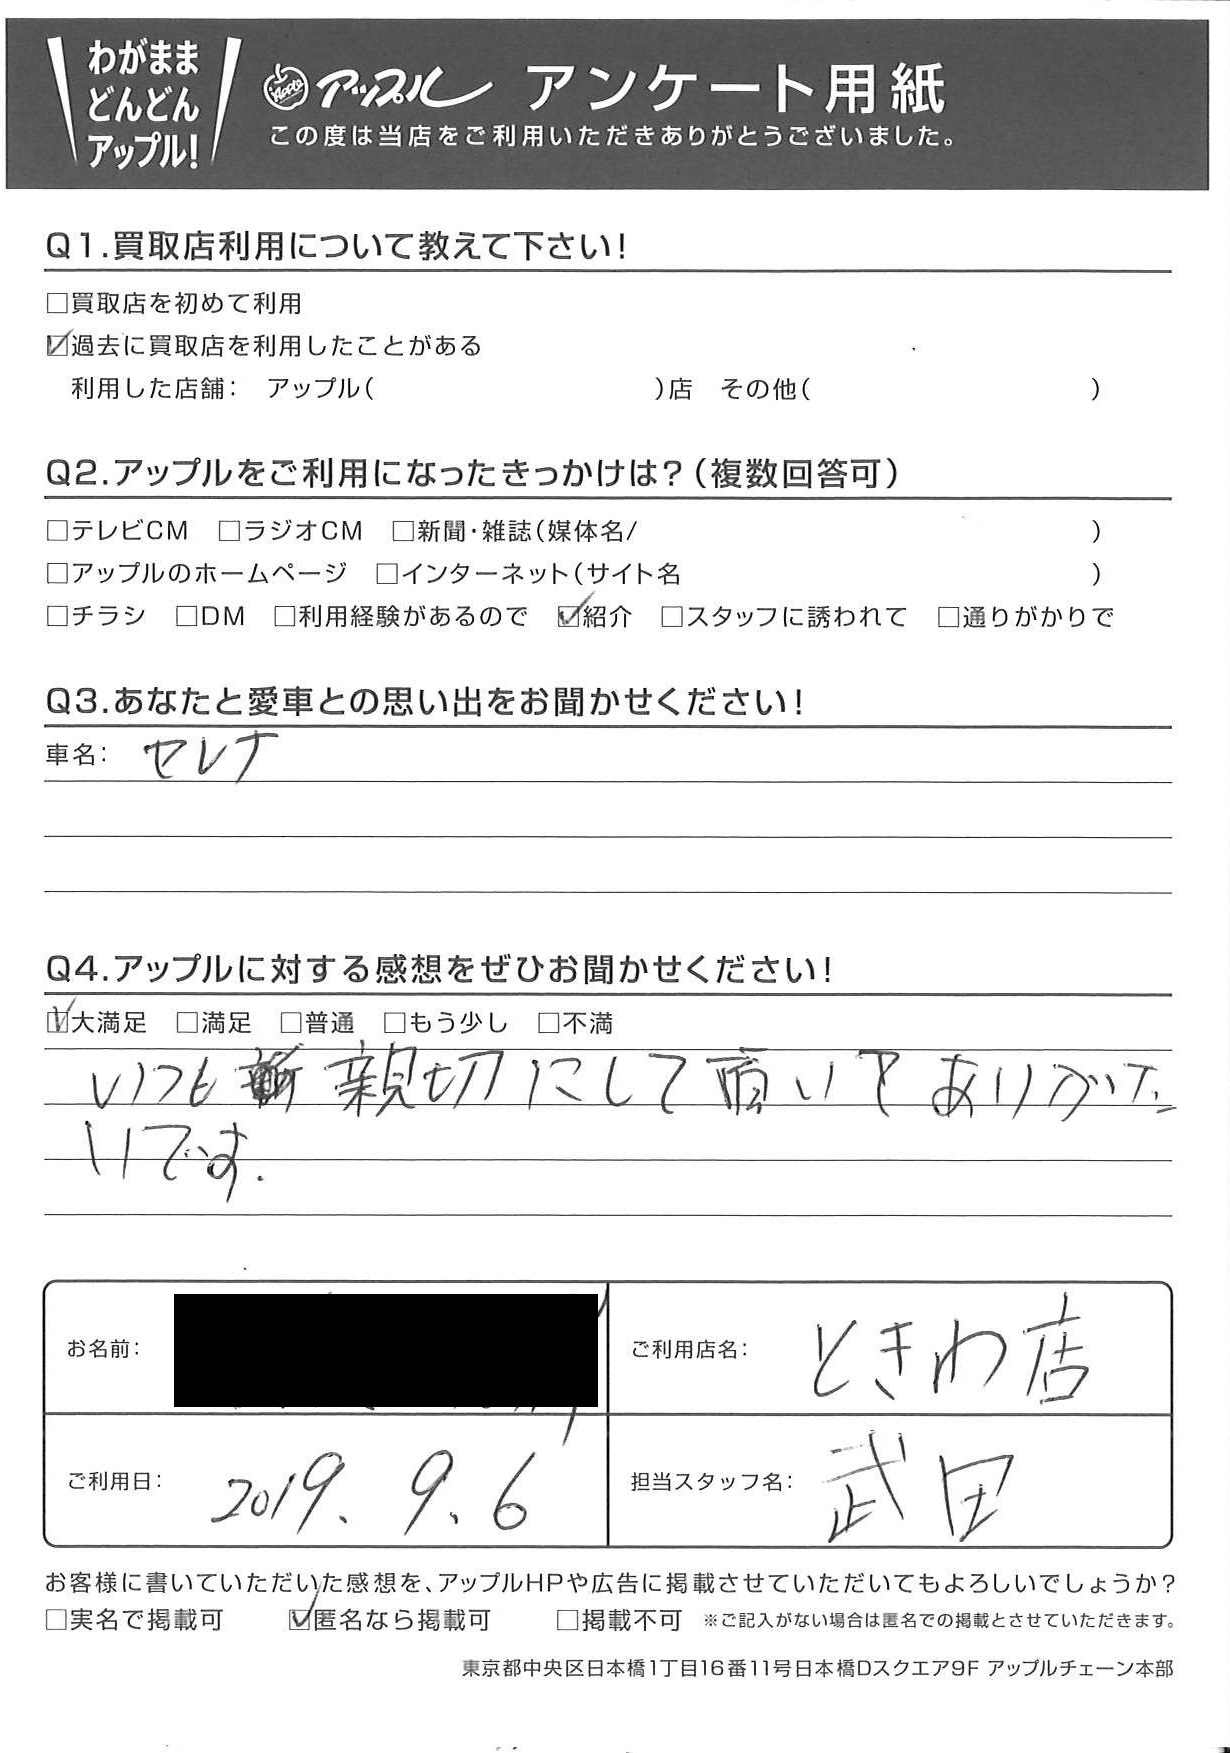 わがまま
どんどん
アップル!
Apple アップル アンケート用紙
この度は当店をご利用いただきありがとうございました。
Q1.買取店利用について教えて下さい!
□買取店を初めて利用
☑過去に買取店を利用したことがある
利用した店舗: アップル( )店 その他( )
Q2.アップルをご利用になったきっかけは?(複数回答可)
□テレビCM □ラジオCM □新聞・雑誌(媒体名/ )
□アップルのホームページ □インターネット(サイト名 )
□チラシ □DM □利用経験があるので ☑紹介 □スタッフに誘われて □通りがかりで
Q3.あなたと愛車との思い出をお聞かせください!
車名: セレナ
Q4.アップルに対する感想をぜひお聞かせください!
☑大満足 □満足 □普通 □もう少し □不満
いつも 親切にして頂いてありがた
いです.
お名前: ご利用店名: ときわ店
ご利用日: 2019.9.6 担当スタッフ名: 武田
お客様に書いていただいた感想を、アップルHPや広告に掲載させていただいてもよろしいでしょうか?
□実名で掲載可 ☑匿名なら掲載可 □掲載不可 ※ご記入がない場合は匿名での掲載とさせていただきます。
東京都中央区日本橋1丁目16番11号日本橋Dスクエア9F アップルチェーン本部